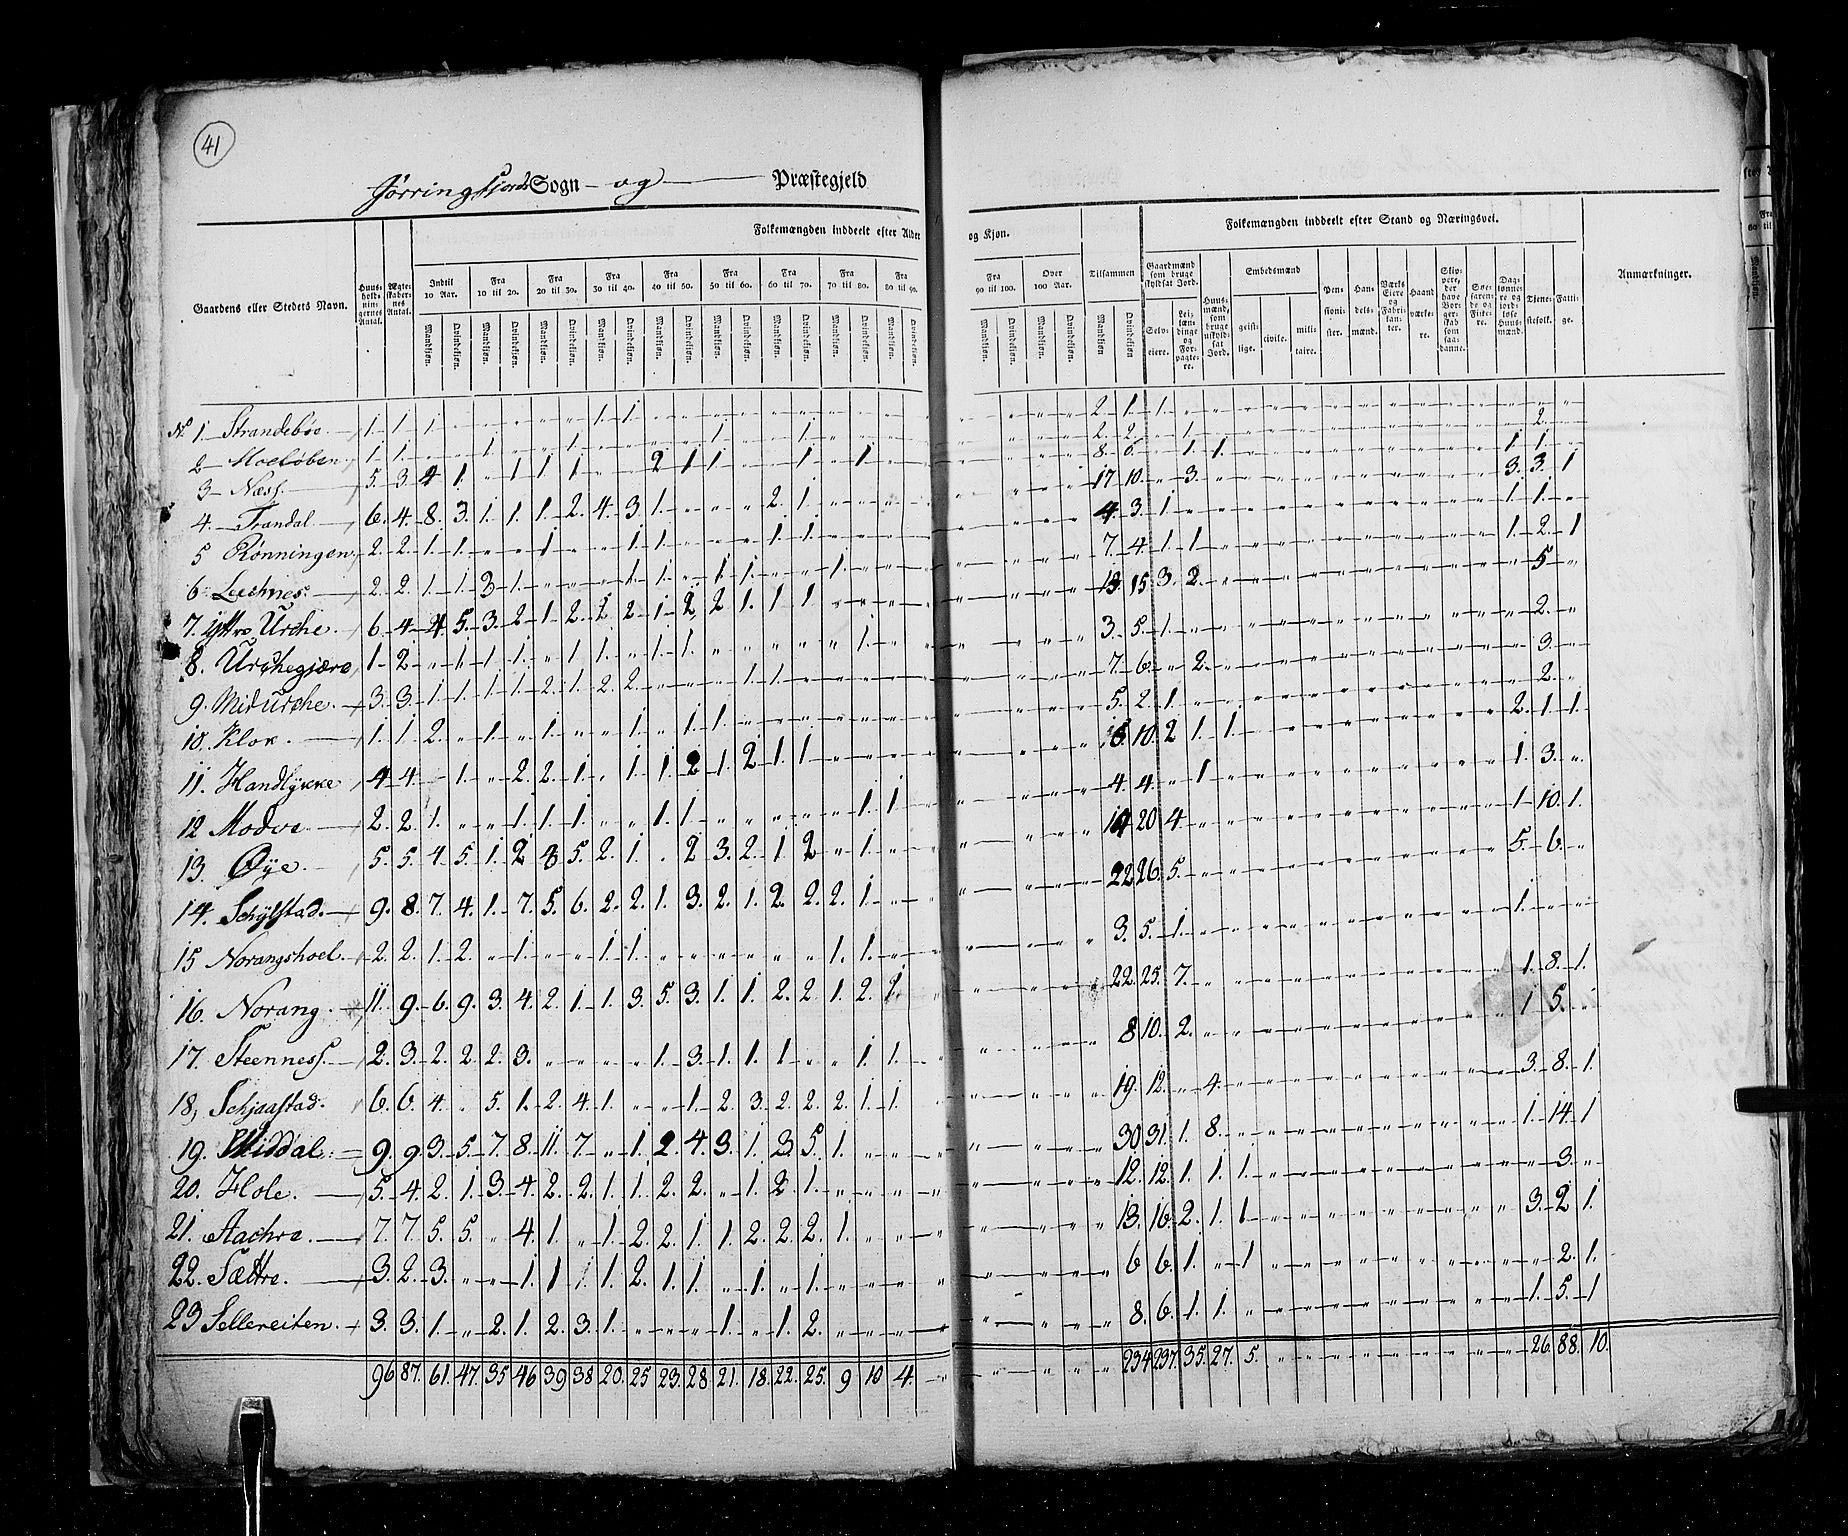 41
Jørringfjords Sogn - og - Præstegjeld
Folkemængden inddeelt efter Alder og Kjøn.
Folkemængden inddeelt efter Stand og Næringsvei.
Gaardens eller Stedets Navn.
Huus-holdnin-gernes Antal.
Ægte-skaber-nes Antal.
Indtil 10 Aar.
Fra 10 til 20.
Fra 20 til 30.
Fra 30 til 40.
Fra 40 til 50.
Fra 50 til 60.
Fra 60 til 70.
Fra 70 til 80.
Fra 80 til 90.
Fra 90 til 100.
Over 100 Aar.
Tilsammen
Mandkjøn. Qvindekjøn.
Gaardmænd som bruge skyldsat Jord.
Selveiere.
Leilændinge og Forpagtere.
Huusmænd, som bruge uskyldsat Jord.
Embedsmænd
geistlige. civile. militaire.
Pensionister.
Handelsmænd.
Værks Eiere og Fabrikanter.
Haandværkere.
Skippere, der have Borgerskab som saadanne.
Søefarende og Fiskere.
Daglønnere og jordløse Huusmænd.
Tjenestefolk.
Fattige.
Anmærkninger.
No 1 Strandeböe 1. 1. 1. 1. 1. 2. 1. 1.
2 Moeløben 1. 1. 1. 1. 1. 1. 2. 2. 1. 2.
3 Næss. 5. 3. 4. 1. 1. 1. 1. 2. 1. 1. 1. 1. 8. 6. 1. 1. 1. 1.
4. Trandal 6. 4. 8. 3. 1. 1. 1. 2. 4. 3. 1. 2. 1. 17. 10. 3. 3. 3. 1
5 Rönningen 2. 2. 1. 1. 1. 1. 1. 1. 1. 4. 3. 1. 1. 1.
6. Leetnes. 2. 2. 1. 1. 3. 1. 1. 1. 1. 1. 1. 7. 4. 1. 1. 1. 2. 1
7. Yttre Urche 6. 4. 4. 5. 3. 2. 1. 2. 2. 2. 1. 2. 2. 1. 1. 1. 13. 15. 3. 2. 5.
8. Urchegjære 1. 2. 1. 1. 1. 1. 1. 1. 1. 1. 3. 5. 1. 2.
9. Mid Urche. 3. 3. 1. 1. 1. 1. 2. 1. 2. 2. 1. 1. 7. 6. 2. 3.
10. Klok. 1. 1. 2. 1. 1. 1. 1. 1. 5. 2. 1. 2.
11. Handlykke 4. 4. 1. 2. 2. 1. 1. 1. 2. 1. 2. 1. 1. 10. 2. 1. 1. 2. 1. 1.
12 Modve. 2. 2. 1. 1. 1. 1. 1. 1. 1. 1. 4. 4. 1. 1. 3.
13. Øye. 5. 5. 4. 5. 1. 2. 5. 2. 1. 2. 3. 2. 1. 2. 1. 20. 4. 1. 10. 1.
14. Schylstad. 9. 8. 7. 4. 1. 7. 5. 6. 2. 2. 1. 3. 2. 1. 2. 2. 2. 1. 22. 26. 5. 5. 6.
15 Norangshoel. 2. 2. 1. 2. 1. 1. 1. 1. 1. 3. 5. 1. 1.
16. Norang. 11. 9. 6. 9. 3. 4. 2. 1. 1. 3. 5. 3. 1. 1. 2. 2. 1. 2. 1. 22. 25. 7. 1. 8. 1.
17. Steenness. 2. 3. 2. 2. 2. 3. 1. 3. 1. 1. 1. 1. 1. 1. 8 10. 2. 1 5.
18, Schjaastad. 6. 6. 4. 5. 1. 2. 4. 1. 1. 2. 3. 2. 2. 2. 1. 1. 19. 12. 4. 3. 8. 1.
19. Middal. 9. 9. 3. 5. 7. 8. 11. 7. 1. 2. 4. 3. 1. 3. 5. 1. 30. 31. 1. 8. 1. 14. 1
20. Hole. 5. 4. 2. 1. 3. 4. 2. 2. 1. 1. 2. 2. 1. 2. 1. 12. 12. 1. 1. 1 3.
21. Aachre. 7. 7. 5. 5. 4. 1. 1. 2. 2. 1. 1. 2. 2. 2. 1. 13. 16. 2. 1. 1 3. 2. 1
22. Sættre. 3. 2. 3. 1. 1. 1. 1. 2. 1. 1. 1. 1. 6 6. 1. 1 2. 1.
23 Sellereiten. 3. 3. 1. 2. 1. 2. 3. 1. 1. 1. 2. 8. 6. 1. 1. 1. 5. 1
96 87. 61. 47. 35. 46 39 38 20. 25 23. 28 21. 18. 22. 25. 9 10 4. 234 237. 35. 27. 5. 26. 88. 10.